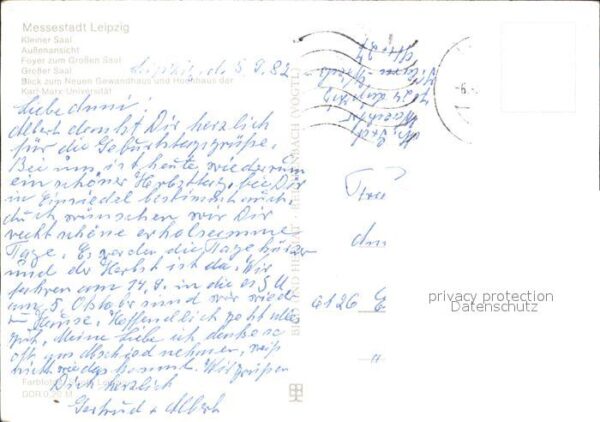 Messestadt Leipzig
Kleiner Saal
Außenansicht
Foyer zum Großen Saal
Großer Saal
Blick zum Neuen Gewandhaus und Hochhaus der
Karl-Marx-Universität
Leipzig, d. 5.9.82
Liebe Anni!
Albert dankt Dir herzlich
für die Geburtstagsgrüße.
Bei uns ist heute wiederum
ein schöner Herbsttag, bei Dir
in Einsiedel bestimmt auch,
wünschen wir Dir
recht schöne erholsame
Tage. Es werden die Tage kürzer
und der Herbst ist da. Wir
fahren am 14.9. in die
am 5. Oktober sind wir wieder
zu Hause. Hoffentlich geht alles
gut. Meine Liebe ich denke so
oft ans Abschied nehmen, weiß
nicht wie das kommt. Wir grüßen
Dich herzlich
Gertrud + Albert
DDR 0,20 M
BILD UND HEIMAT REICHENBACH (VOGTL)
Frau
6126 E
privacy protection
Datenschutz